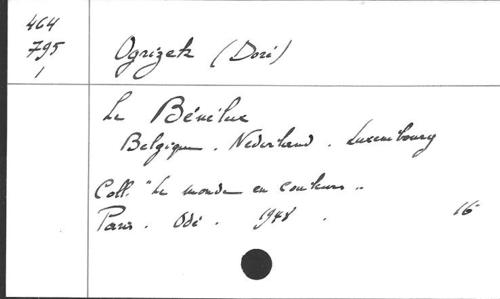 464
795
1
Ogrizek (Doré)
Le Bénélux
Belgique . Nederland . Luxembourg
Coll. "Le monde en couleurs ..
Paris . Odé . 1948 . 16